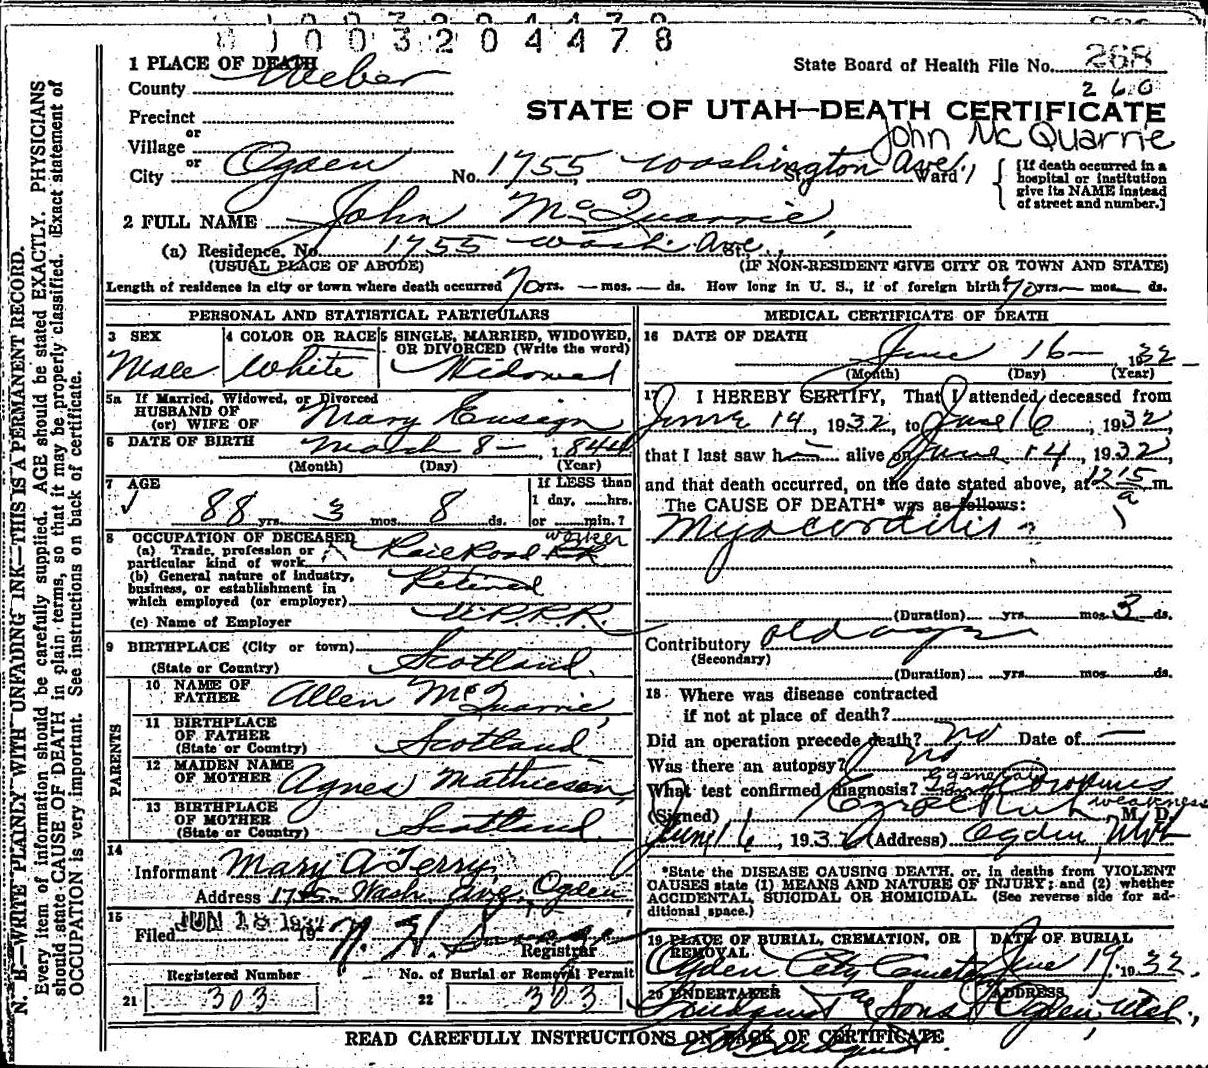 8 1 0 0 3 2 0 4 4 7 8
1 PLACE OF DEATH
County Weber
State Board of Health File No. 268
260
Precinct
STATE OF UTAH—DEATH CERTIFICATE
John McQuarrie
or
Village
or
City Ogden No. 1755 Washington Ave. St., Ward
[If death occurred in a hospital or institution give its NAME instead of street and number.]
2 FULL NAME John McQuarrie
(a) Residence, No. 1755 Wash. Ave. St.,
(USUAL PLACE OF ABODE) (IF NON-RESIDENT GIVE CITY OR TOWN AND STATE)
Length of residence in city or town where death occurred 70 yrs. — mos. — ds. How long in U. S., if of foreign birth? 70 yrs — mos — ds.
PERSONAL AND STATISTICAL PARTICULARS
3 SEX
Male
4 COLOR OR RACE
White
5 SINGLE, MARRIED, WIDOWED, OR DIVORCED (Write the word)
Widowed
5a If Married, Widowed, or Divorced
HUSBAND OF
(or) WIFE OF Mary Ensign
6 DATE OF BIRTH March 8 — 1844
(Month) (Day) (Year)
7 AGE
88 yrs. 3 mos. 8 ds.
If LESS than
1 day, ......hrs.
or ......min.?
8 OCCUPATION OF DECEASED
(a) Trade, profession or particular kind of work RailRoad worker
(b) General nature of industry, business, or establishment in which employed (or employer) Retired
(c) Name of Employer U.P.R.R.
9 BIRTHPLACE (City or town)
(State or Country) Scotland
PARENTS
10 NAME OF FATHER Allen McQuarrie
11 BIRTHPLACE OF FATHER (State or Country) Scotland
12 MAIDEN NAME OF MOTHER Agnes Mathieson
13 BIRTHPLACE OF MOTHER (State or Country) Scotland
14
Informant Mary A Terry
Address 1755 Wash. Ave, Ogden
15
Filed JUN 18 1932 19
Registrar
Registered Number No. of Burial or Removal Permit
21 303 22 303
MEDICAL CERTIFICATE OF DEATH
16 DATE OF DEATH
June 16 — 1932
(Month) (Day) (Year)
17 I HEREBY CERTIFY, That I attended deceased from
June 14, 1932, to June 16, 1932,
that I last saw h alive on June 14, 1932,
and that death occurred, on the date stated above, at 1215 a m.
The CAUSE OF DEATH* was as follows:
Myocarditis
(Duration) yrs. mos. 3 ds.
Contributory old age
(Secondary)
(Duration) yrs. mos. ds.
18 Where was disease contracted
if not at place of death?
Did an operation precede death? No Date of —
Was there an autopsy? No
What test confirmed diagnosis? general weakness
(Signed) M. D.
June 16, 1932 (Address) Ogden, Utah
*State the DISEASE CAUSING DEATH, or, in deaths from VIOLENT
CAUSES state (1) MEANS AND NATURE OF INJURY; and (2) whether
ACCIDENTAL, SUICIDAL OR HOMICIDAL. (See reverse side for ad-
ditional space.)
19 PLACE OF BURIAL, CREMATION, OR REMOVAL
Ogden City Cemetery
DATE OF BURIAL
June 19, 1932.
20 UNDERTAKER
Lindquist & Sons
ADDRESS
Ogden, Utah.
READ CAREFULLY INSTRUCTIONS ON BACK OF CERTIFICATE
N. B.—WRITE PLAINLY WITH UNFADING INK—THIS IS A PERMANENT RECORD.
Every item of information should be carefully supplied. AGE should be stated EXACTLY. PHYSICIANS
should state CAUSE OF DEATH in plain terms, so that it may be properly classified. Exact statement of
OCCUPATION is very important. See instructions on back of certificate.